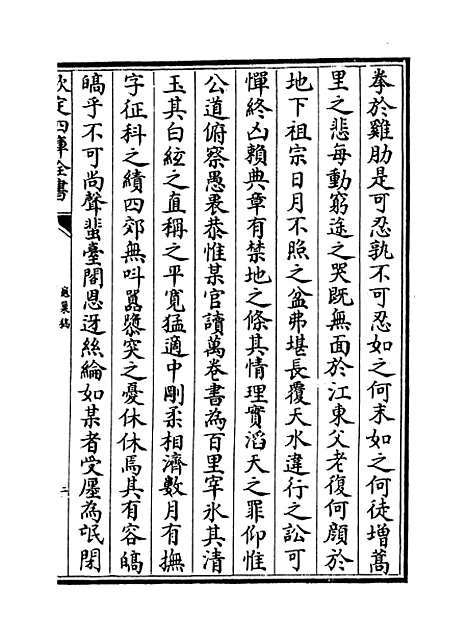 拳於雞肋是可忍孰不可忍如之何末如之何徒增蒿
里之悲每動窮途之哭既無面於江東父老復何顔於
地下祖宗日月不照之盆弗堪長覆天水違行之訟可
憚終凶賴典章有禁地之條其情理實滔天之罪仰惟
公道俯察愚衷恭惟某官讀萬卷書為百里宰氷其清
玉其白絃之直稱之平寬猛適中剛柔相濟數月有撫
字征科之績四郊無呌嚚隳突之憂休休焉其有容皜
皜乎不可尚聲蜚臺閣恩迓絲綸如某者受廛為氓閉
欽定四庫全書
二